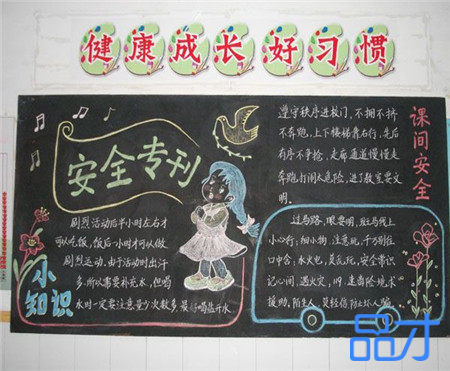 健康成长好习惯
安全专刊
剧烈活动后半小时左右才
可以吃饭,饭后一小时才可以做
剧烈运动。由于活动时出汗
多,所以需要补充水,但喝
水时一定要注意量少次数多,最好喝盐开水
小知识
课间安全
遵守秩序进校门,不拥不挤
不奔跑,上下楼梯靠右行,先后
有序不争抢,走廊通道慢慢走
奔跑打闹太危险,进入教室要文
明。
过马路,眼要明,斑马线上
小心行,细小物,注意玩,千万别往
口中含;水火电,莫乱玩,安全常识
记心间,遇火灾,119,速离险境求
援助,陌生人,莫轻信防止坏人骗
品才